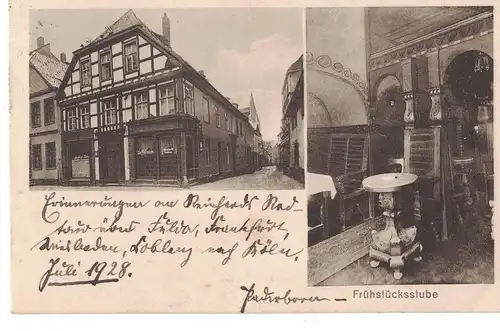 Erinnerungen an Reinhards Rad-
tour über Fulda, Frankfurt,
Wiesbaden, Koblenz nach Köln.
Juli 1928.
Paderborn –
Frühstücksstube